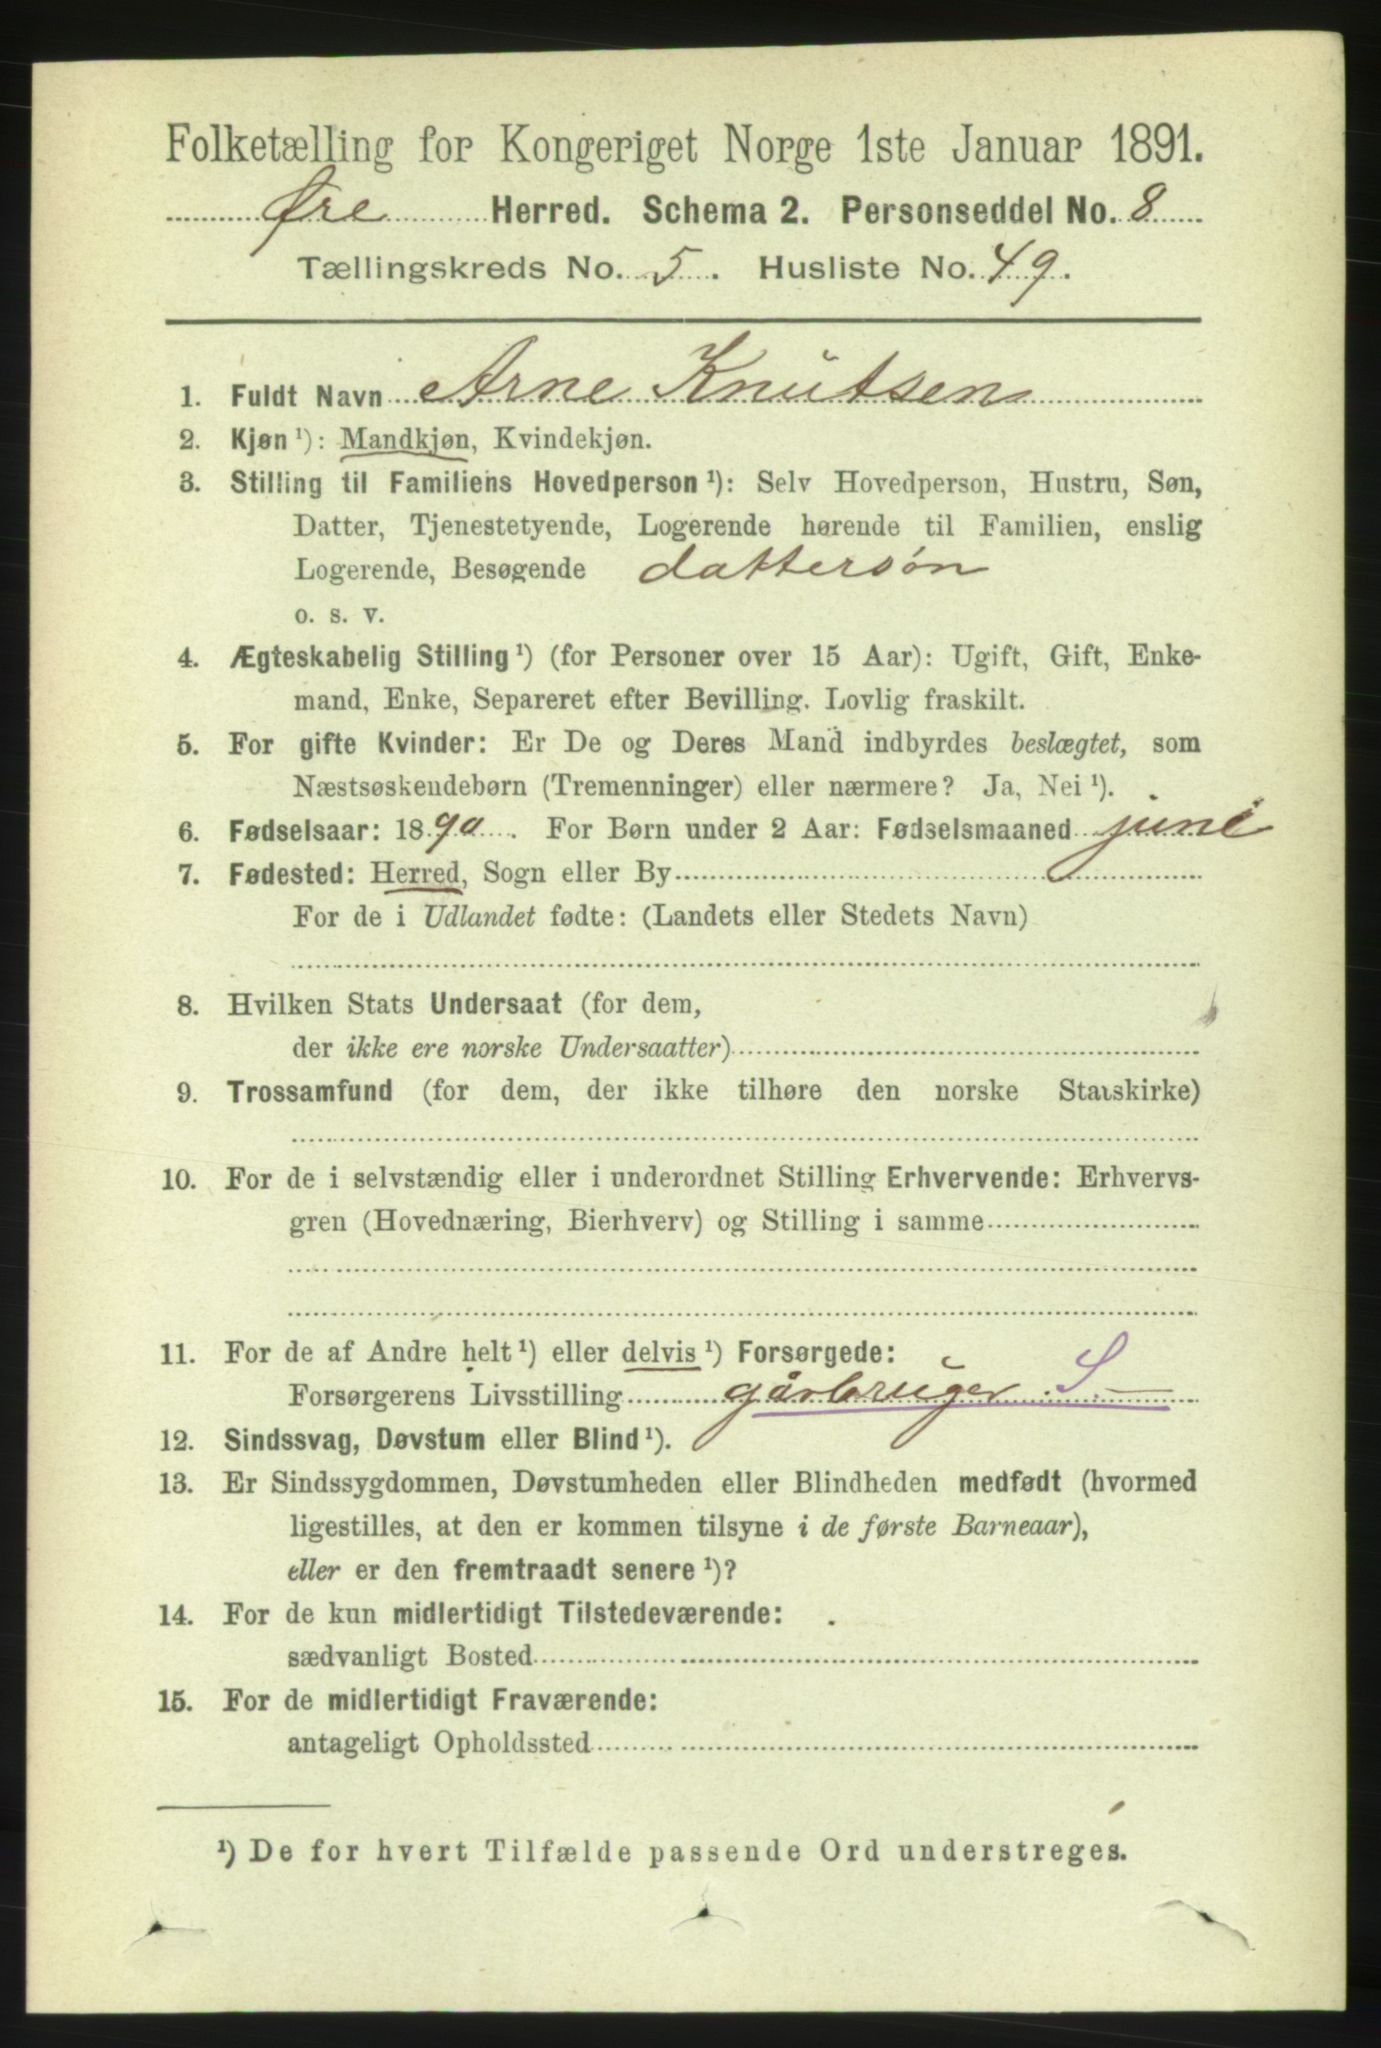 Folketælling for Kongeriget Norge 1ste Januar 1891.
Øre Herred. Schema 2. Personseddel No. 8
Tællingskreds No. 5. Husliste No. 49.
1. Fuldt Navn Arne Knutsen
2. Kjøn ¹): Mandkjøn, Kvindekjøn.
3. Stilling til Familiens Hovedperson ¹): Selv Hovedperson, Hustru, Søn,
Datter, Tjenestetyende, Logerende hørende til Familien, enslig
Logerende, Besøgende dattersøn
o. s. v.
4. Ægteskabelig Stilling ¹) (for Personer over 15 Aar): Ugift, Gift, Enke-
mand, Enke, Separeret efter Bevilling. Lovlig fraskilt.
5. For gifte Kvinder: Er De og Deres Mand indbyrdes beslægtet, som
Næstsøskendebørn (Tremenninger) eller nærmere? Ja, Nei ¹).
6. Fødselsaar: 1890. For Børn under 2 Aar: Fødselsmaaned juni
7. Fødested: Herred, Sogn eller By
For de i Udlandet fødte: (Landets eller Stedets Navn)
8. Hvilken Stats Undersaat (for dem,
der ikke ere norske Undersaatter)
9. Trossamfund (for dem, der ikke tilhøre den norske Statskirke)
10. For de i selvstændig eller i underordnet Stilling Erhvervende: Erhvervs-
gren (Hovednæring, Bierhverv) og Stilling i samme
11. For de af Andre helt ¹) eller delvis ¹) Forsørgede:
Forsørgerens Livsstilling gårbruger S.—
12. Sindssvag, Døvstum eller Blind ¹).
13. Er Sindssygdommen, Døvstumheden eller Blindheden medfødt (hvormed
ligestilles, at den er kommen tilsyne i de første Barneaar),
eller er den fremtraadt senere ¹)?
14. For de kun midlertidigt Tilstedeværende:
sædvanligt Bosted
15. For de midlertidigt Fraværende:
antageligt Opholdssted
¹) De for hvert Tilfælde passende Ord understreges.